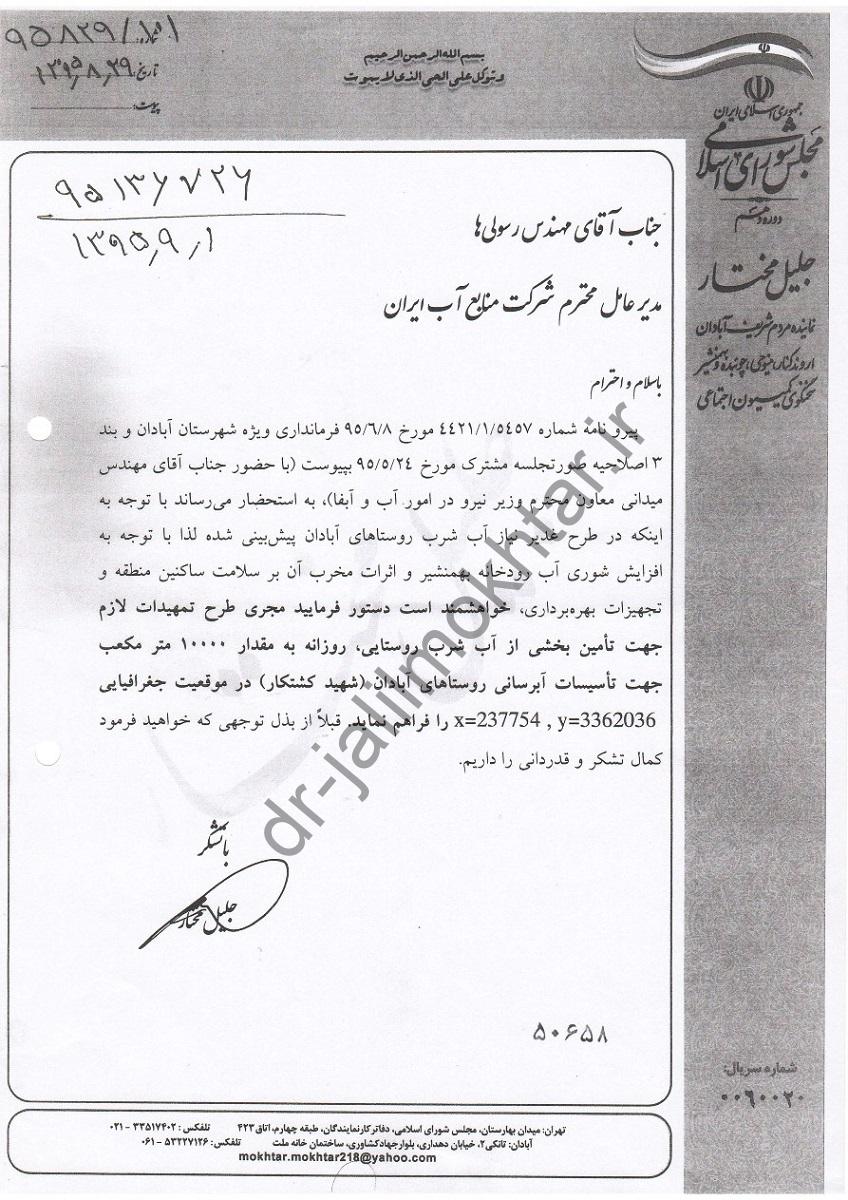 بسم الله الرحمن الرحیم
وتوکل علی الحی الذی لایموت
شماره: ۹۵۸۲۹/۱۰۱
تاریخ: ۱۳۹۵,۸,۲۹
پیوست:
جمهوری اسلامی ایران
مجلس شورای اسلامی
دوره دهم
جلیل مختار
نماینده مردم شریف آبادان
اروندکنار، مینوحی، چوئبده و بهمنشیر
سخنگوی کمیسیون اجتماعی
۹۵۱۳۶۷۲۶
۱۳۹۵,۹,۱
جناب آقای مهندس رسولی‌ها
مدیر عامل محترم شرکت منابع آب ایران
باسلام و احترام
پیرو نامه شماره ۴۴۲۱/۱/۵۴۵۷ مورخ ۹۵/۶/۸ فرمانداری ویژه شهرستان آبادان و بند
۳ اصلاحیه صورتجلسه مشترک مورخ ۹۵/۵/۲۴ بپیوست (با حضور جناب آقای مهندس
میدانی معاون محترم وزیر نیرو در امور آب و آبفا)، به استحضار می‌رساند با توجه به
اینکه در طرح غدیر نیاز آب شرب روستاهای آبادان پیش‌بینی شده لذا با توجه به
افزایش شوری آب رودخانه بهمنشیر و اثرات مخرب آن بر سلامت ساکنین منطقه و
تجهیزات بهره‌برداری، خواهشمند است دستور فرمایید مجری طرح تمهیدات لازم
جهت تأمین بخشی از آب شرب روستایی، روزانه به مقدار ۱۰۰۰۰ متر مکعب
جهت تأسیسات آبرسانی روستاهای آبادان (شهید کشتکار) در موقعیت جغرافیایی
x=237754 , y=3362036 را فراهم نماید. قبلاً از بذل توجهی که خواهید فرمود
کمال تشکر و قدردانی را داریم.
باتشکر
جلیل مختار
dr-jalilmokhtar.ir
۵۰۶۵۸
شماره سریال:
۰۰۶۰۰۲۰
تهران: میدان بهارستان، مجلس شورای اسلامی، دفاتر کار نمایندگان، طبقه چهارم، اتاق ۴۲۳ تلفکس: ۳۳۵۱۷۴۰۲ - ۰۲۱
آبادان: تانکی۲، خیابان دهداری، بلوار جهاد کشاورزی، ساختمان خانه ملت تلفکس: ۵۳۲۲۷۱۲۶ - ۰۶۱
mokhtar.mokhtar218@yahoo.com